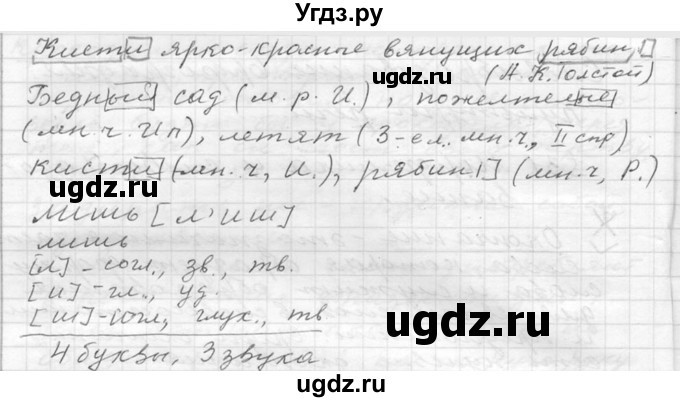 Угдз.ру
Кисти ярко-красные вянущих рябин,
(А.К.Толстой)
Бедный сад (м.р.И.), пожелтелые
(мн.ч.Ип), летят (3-е л. мн.ч., II спр)
Кисти (мн.ч, И.), рябин (мн.ч, Р.)
лишь [л'иш]
лишь
[л] - согл., зв., тв.
[и] - гл., уд.
[ш] - согл, глух., тв
4 буквы, 3 звука
©ugdz.ru
©ugdz.ru
©ugdz.ru
ugdz.ru